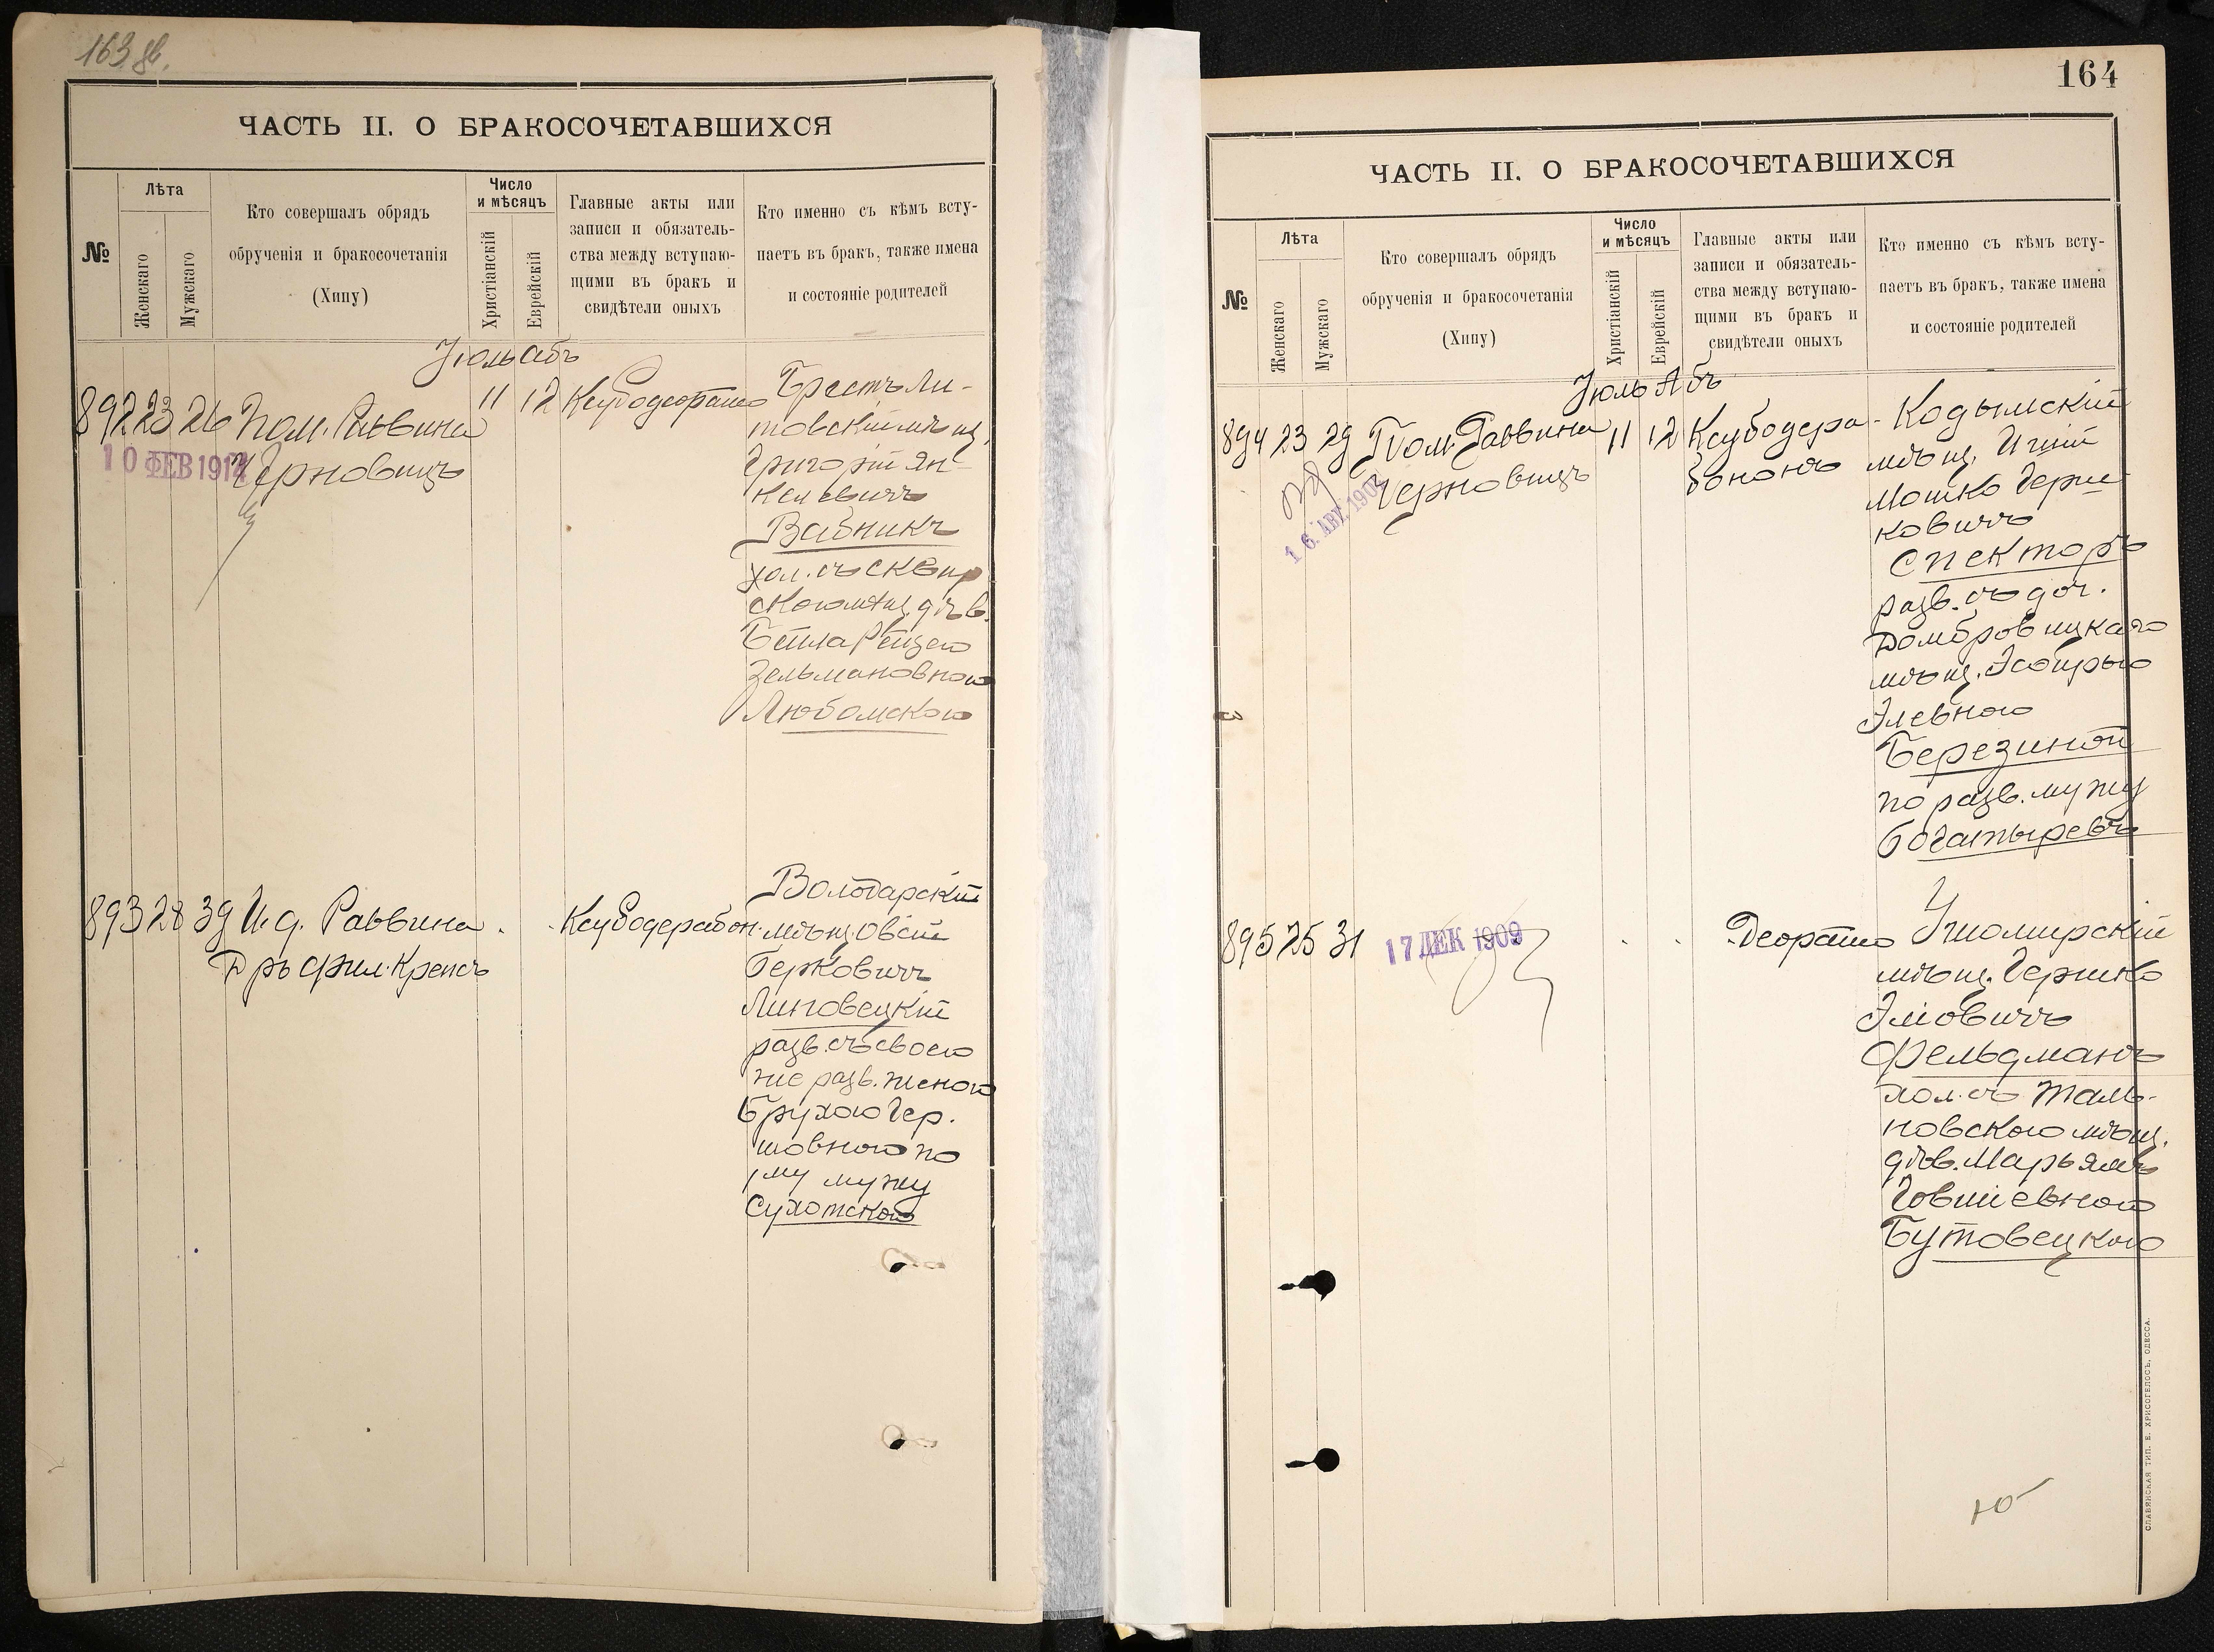 163 об.
ЧАСТЬ II. О БРАКОСОЧЕТАВШИХСЯ
№
Лѣта
Женскаго
Мужскаго
Кто совершалъ обрядъ
обрученія и бракосочетанія
(Хипу)
Число
и мѣсяцъ
Христіанскій
Еврейскій
Главные акты или
записи и обязатель-
ства между вступаю-
щими въ бракъ и
свидѣтели оныхъ
Кто именно съ кѣмъ всту-
паетъ въ бракъ, также имена
и состояніе родителей
Іюль Абъ
892 23 26 Пом. Раввина
Черновицъ
10 ФЕВ 1914
11 12
Брестъ Ли-
товскій мѣщ.
Григорій Ян-
келевичъ
Вабникъ
хол. съ сквир
скою мѣщ. дѣв.
Бейла Рейзею
Зельмановною
Любомскою
893 28 39 И. д. Раввина
Дръ Фил. Крепсъ
Ксубодерабон.
Володарскій
мѣщ. Овсій
Берковичъ
Линговецкій
разв. съ своею
же разв. женою
Брухою Гер.
шовною по
1му мужу
Сухотскою
164
ЧАСТЬ II. О БРАКОСОЧЕТАВШИХСЯ
№
Лѣта
Женскаго
Мужскаго
Кто совершалъ обрядъ
обрученія и бракосочетанія
(Хипу)
Число
и мѣсяцъ
Христіанскій
Еврейскій
Главные акты или
записи и обязатель-
ства между вступаю-
щими въ бракъ и
свидѣтели оныхъ
Кто именно съ кѣмъ всту-
паетъ въ бракъ, также имена
и состояніе родителей
Іюль Абъ
894 23 29 Пом. Раввина
Черновицъ
16 АВГ. 190
11 12
Ксубодера-
бононъ
Кодымскій
мѣщ. Ицій
Мошко Герш
ковичъ
Спекторъ
разв. съ доч.
Домбровицкаго
мѣщ. Эсѳирью
Элевною
Березиной
по разв. мужу
Богатыревъ
895 25 31
17 ДЕК 1909
Деорайсо
Ушомирскій
мѣщ. Гершко
Эліовичъ
Фельдманъ
хол. съ Таль-
новскою мѣщ.
дѣв. Марьямъ
Іовшіевною
Бутовецкою
СЛАВЯНСКАЯ ТИП. Е. ХРИСОГЕЛОСЪ, ОДЕССА.